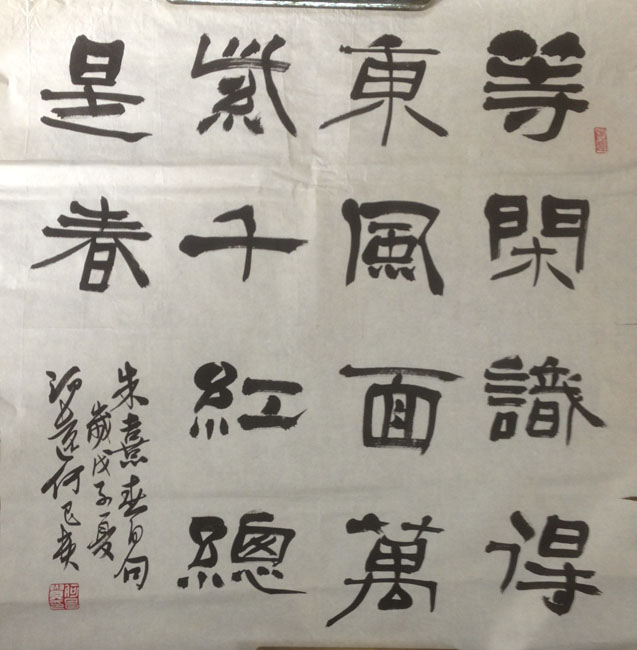 等閑識得
東風面萬
紫千紅總
是春
朱熹春日句
歲戊子夏
何